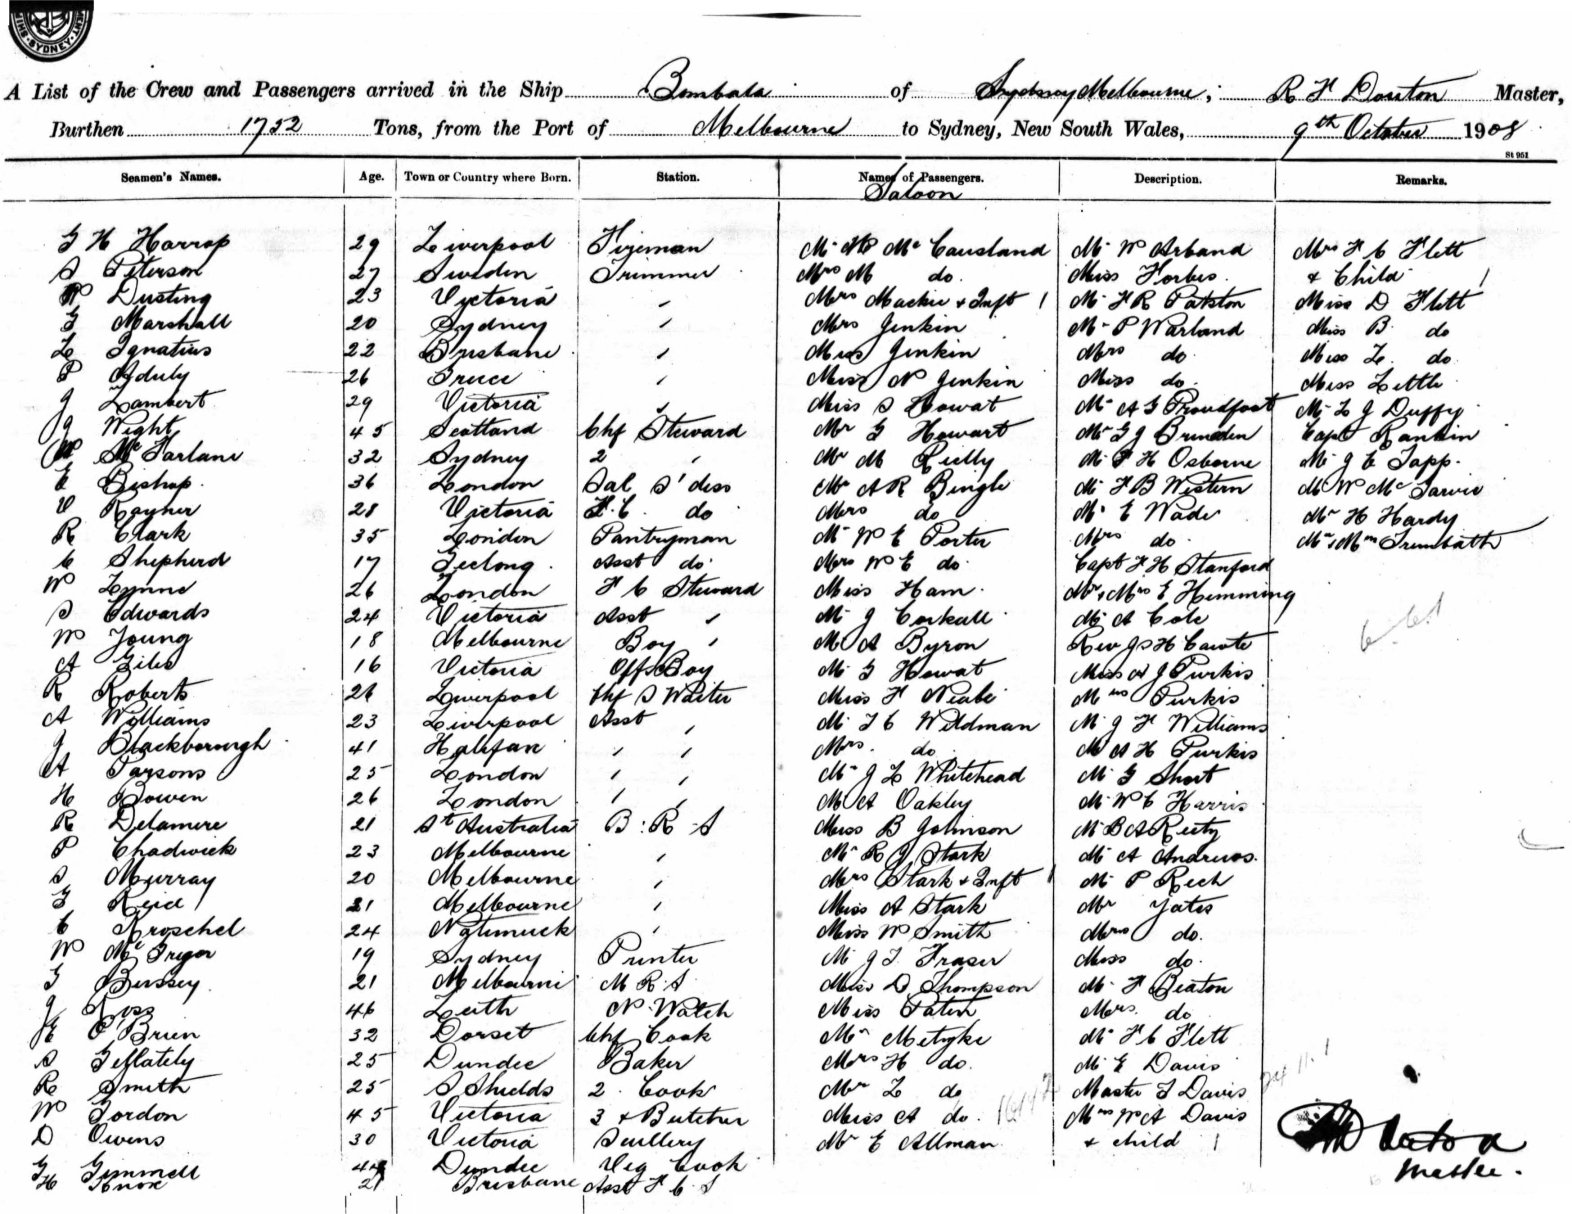 SYDNEY
A List of the Crew and Passengers arrived in the Ship Bombala of Melbourne, R F Douton Master,
Burthen 1752 Tons, from the Port of Melbourne to Sydney, New South Wales, 9th October 1908
St 951
Seamen's Names. Age. Town or Country where Born. Station. Names of Passengers. Description. Remarks.
Saloon
G H Harrop 29 Liverpool Fireman Mr McCausland Mr W Arband Mrs F C Flett
S Peterson 27 Sweden Trimmer Mrs M do. Miss Forbes. & Child 1
W Dusting 23 Victoria " Mrs Mackie & Inft 1 Mr F R Patston Miss D Flett
G Marshall 20 Sydney " Mrs Jenkin Mr P Warland Miss B. do
L Ignatius 22 Brisbane " Miss Jenkin Mrs do. Miss L. do.
P 26 " Miss N Jenkin Miss do. Miss Little
J Lambert 29 Victoria " Miss S Howat Mr A G Proudfoot Mr L J Duffy
J Wight 45 Scotland Chf Steward Mr G Howart Mr G J Brinden Capt Rankin
W McFarlane 32 Sydney 2 " Mr M Reilly Mr F H Osborne Mr J C Tapp.
E Bishop. 36 London Sal S'dess Mr A R Bingle Mr F B Western Mr W McJarvie
V Rayner 28 Victoria F. C. do Mrs do Mr E Wade Mr H Hardy
R Clark 35 London Pantryman Mr W E Porter Mrs do. Mr & Mrs Trembath
C Shepherd 17 Geelong. Asst do. Mrs W E do. Capt F H Stanford
W Lynne 26 London F C Steward Miss Ham. Mr & Mrs E Hemming
S Edwards 24 Victoria Asst " Mr J Corkall Mr A Cole
W Young 18 Melbourne Boy " Mr A Byron Rev J S H Cawte
A Giles 16 Victoria Off. Boy Mr G Howat Miss J Purkis
R Roberts 24 Liverpool Chf S Waiter Miss F Neabe Mrs Purkis
A Williams 23 Liverpool Asst " Mr T C Wildman Mr J F Williams
J Blackborough 41 Halifax " " Mrs. do. Mr A H Purkis
A Parsons 25 London " " Mr J L Whitehead Mr G Short
H Bowen 26 London " " Mr A Oakley Mr W C Harris
R Delamere 21 St Australia B. R. S Miss B Johnson Mr B A
P Chadwick 23 Melbourne " Mr R J Stark Mr A Andrews.
S Murray 20 Melbourne " Mrs Stark & Inft 1 Mr P Rech
G Reid 21 Melbourne " Miss A Stark Mr Yates
C Kroschel 24 Natimuck " Miss W Smith Mrs do.
W McGregor 19 Sydney Printer Mr J T Fraser Miss do.
G Bussey. 21 Melbourne M R. S Miss D Thompson Mr F Beaton
J Ross 46 Leith N. Watch Miss Paten Mrs. do
E O'Brien 32 Dorset Chf Cook Mr Metyke Mr F C Flett
S Geflately 25 Dundee Baker Mrs H do. Mr E Davis
R Smith 25 S Shields 2. Cook Mr L do Master T Davis
W Gordon 45 Victoria 3 & Butcher Miss A do. Mrs W A Davis
D Owens 30 Victoria Scullery Mr E Allman & child 1
G Gimmell 44 Dundee Veg Cook
H Knox 21 Brisbane Asst F C S
Master.